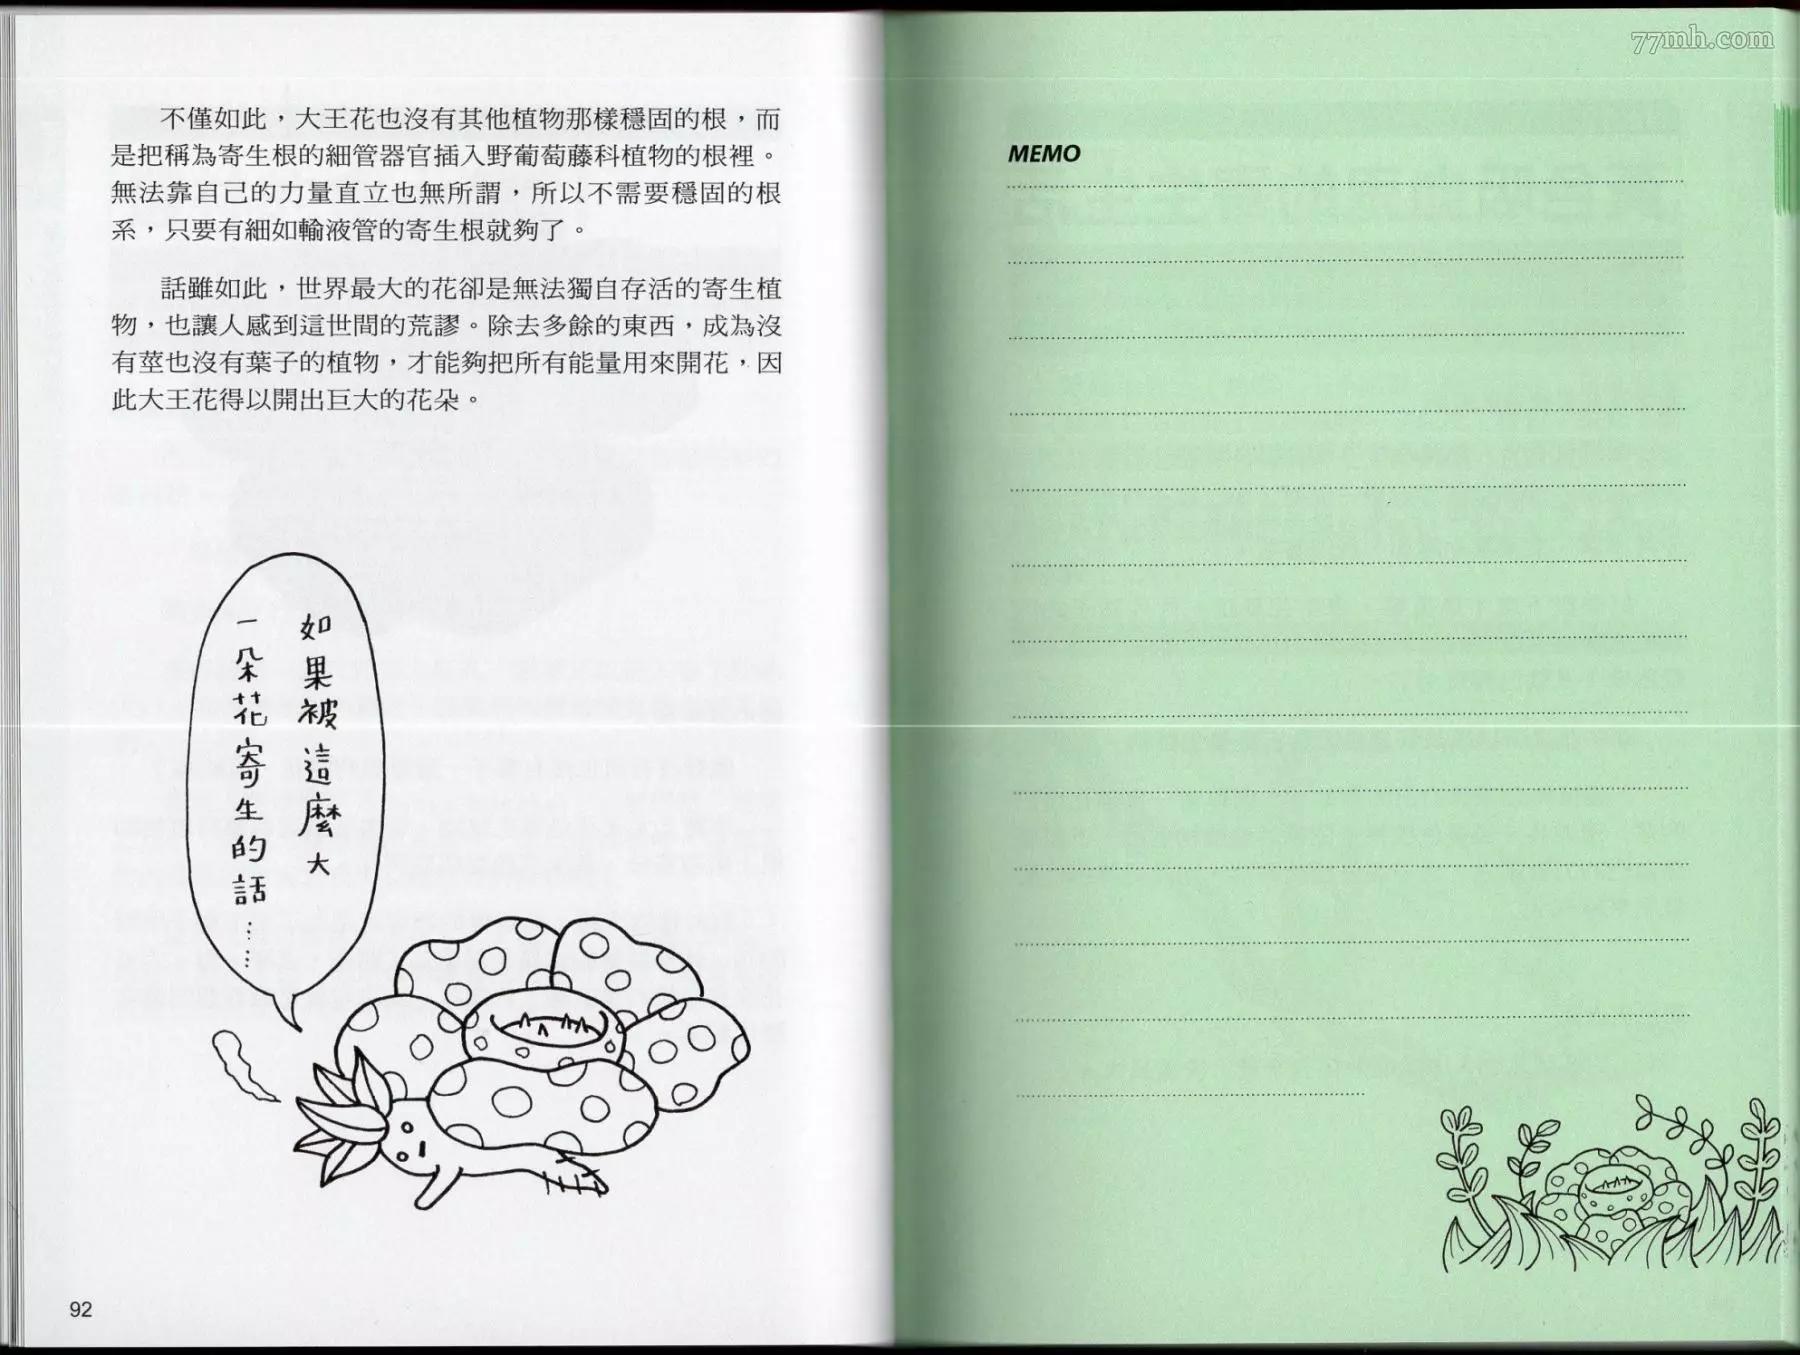 不僅如此，大王花也沒有其他植物那樣穩固的根，而
是把稱為寄生根的細管器官插入野葡萄藤科植物的根裡。
無法靠自己的力量直立也無所謂，所以不需要穩固的根
系，只要有細如輸液管的寄生根就夠了。
話雖如此，世界最大的花卻是無法獨自存活的寄生植
物，也讓人感到這世間的荒謬。除去多餘的東西，成為沒
有莖也沒有葉子的植物，才能夠把所有能量用來開花，因
此大王花得以開出巨大的花朵。
如果被這麼大
一朵花寄生的話……
92
77mh.com
MEMO